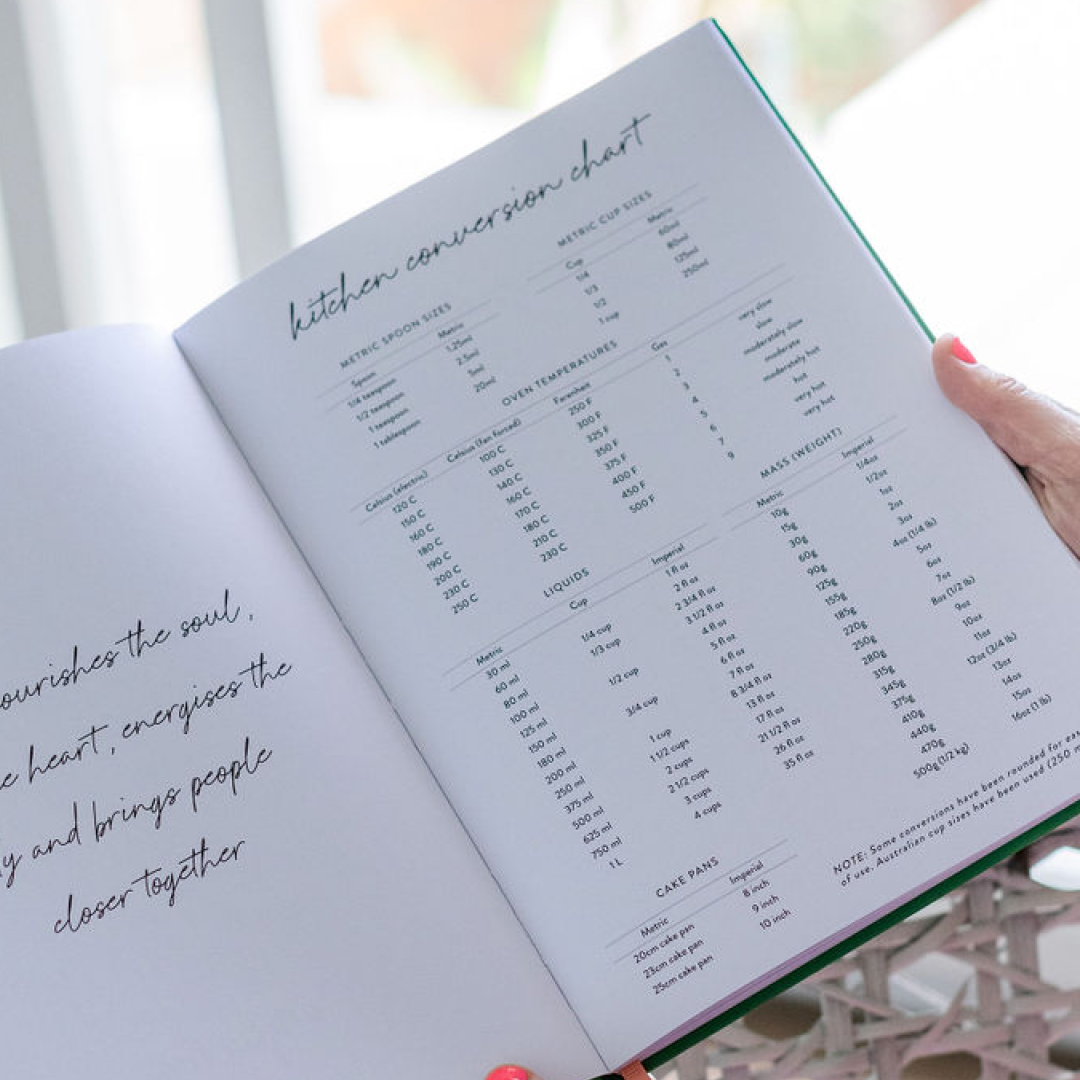 ourishes the soul,
e heart, energises the
y and brings people
closer together
kitchen conversion chart
METRIC SPOON SIZES
Spoon Metric
1/4 teaspoon 1.25ml
1/2 teaspoon 2.5ml
1 teaspoon 5ml
1 tablespoon 20ml
METRIC CUP SIZES
Cup Metric
1/4 60ml
1/3 80ml
1/2 125ml
1 cup 250ml
OVEN TEMPERATURES
Celsius (electric) Celsius (fan forced) Farenheit Gas
120 C 100 C 250 F 1 very slow
150 C 130 C 300 F 2 slow
160 C 140 C 325 F 3 moderately slow
180 C 160 C 350 F 4 moderate
190 C 170 C 375 F 5 moderately hot
200 C 180 C 400 F 6 hot
230 C 210 C 450 F 7 very hot
250 C 230 C 500 F 9 very hot
LIQUIDS
Metric Cup Imperial
30 ml 1 fl oz
60 ml 1/4 cup 2 fl oz
80 ml 1/3 cup 2 3/4 fl oz
100 ml 3 1/2 fl oz
125 ml 1/2 cup 4 fl oz
150 ml 5 fl oz
180 ml 3/4 cup 6 fl oz
200 ml 7 fl oz
250 ml 1 cup 8 3/4 fl oz
375 ml 1 1/2 cups 13 fl oz
500 ml 2 cups 17 fl oz
625 ml 2 1/2 cups 21 1/2 fl oz
750 ml 3 cups 26 fl oz
1 L 4 cups 35 fl oz
MASS (WEIGHT)
Metric Imperial
10g 1/4oz
15g 1/2oz
30g 1oz
60g 2oz
90g 3oz
125g 4oz (1/4 lb)
155g 5oz
185g 6oz
220g 7oz
250g 8oz (1/2 lb)
280g 9oz
315g 10oz
345g 11oz
375g 12oz (3/4 lb)
410g 13oz
440g 14oz
470g 15oz
500g (1/2 kg) 16oz (1 lb)
CAKE PANS
Metric Imperial
20cm cake pan 8 inch
23cm cake pan 9 inch
25cm cake pan 10 inch
NOTE: Some conversions have been rounded for eas
of use. Australian cup sizes have been used (250 m